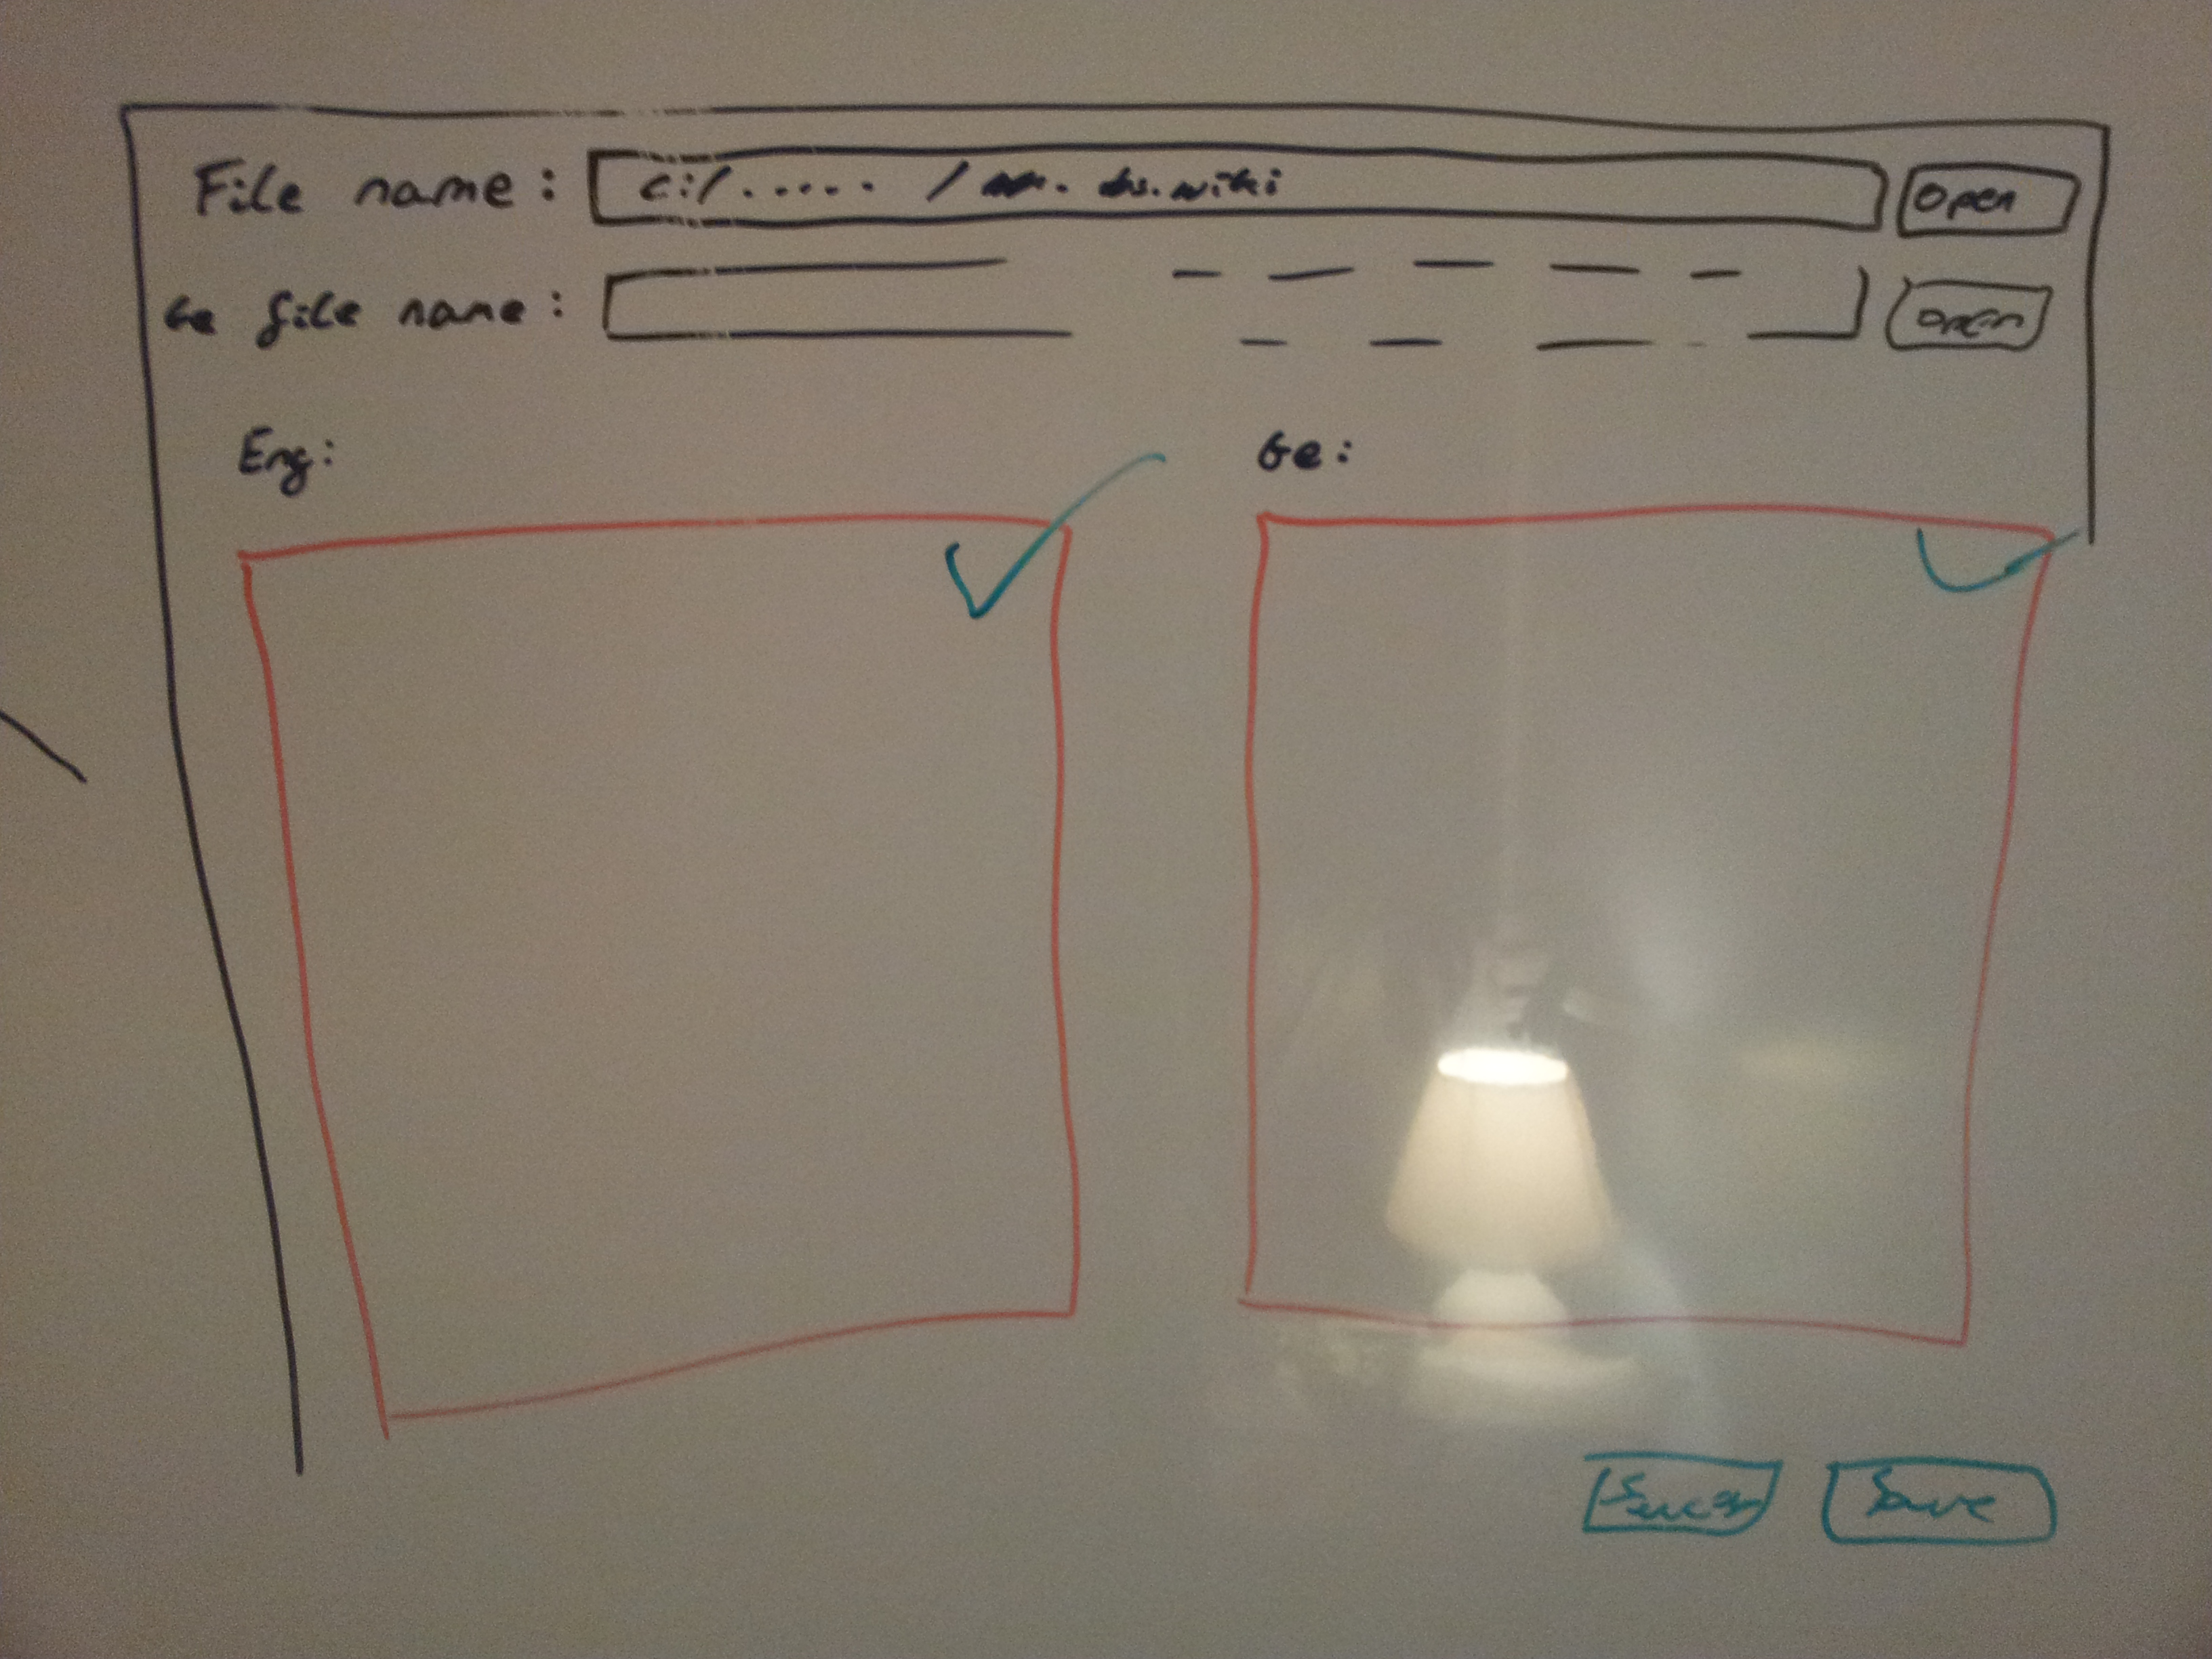 File name: c:/ ..... / .wiki Open
Ge file name: Open
Eng: Ge:
Save